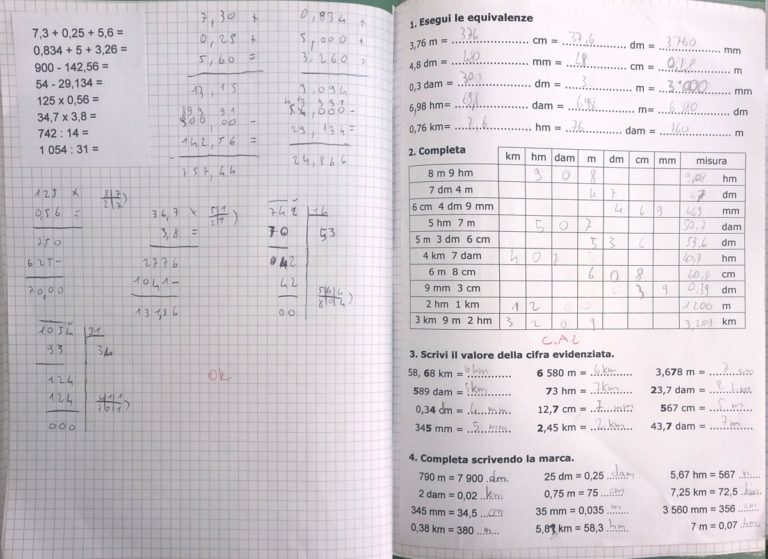 7,3 + 0,25 + 5,6 =
0,834 + 5 + 3,26 =
900 - 142,56 =
54 - 29,134 =
125 x 0,56 =
34,7 x 3,8 =
742 : 14 =
1 054 : 31 =
7,30 +
0,25 +
5,60 =
13,15
0,834 +
5,000 +
3,260 =
9,094
900 00 -
142,56 =
757,44
54,000 -
29,134 =
24,866
125 x
0,56 =
750
625-
70,00
34,7 x
3,8 =
2776
1041-
131,86
742 14
70 53
042
42
00
1054 31
93 34
124
124
000
Ok
1. Esegui le equivalenze
3,76 m = 376 cm = 37,6 dm = 3760 mm
4,8 dm = 480 mm = 48 cm = 0,48 m
0,3 dam = 30 dm = 3 m = 3000 mm
6,98 hm = 69,8 dam = 698 m = 6980 dm
0,76 km = 7,6 hm = 76 dam = 760 m
2. Completa
km hm dam m dm cm mm misura
8 m 9 hm 9 0 8 9,08 hm
7 dm 4 m 4 7 47 dm
6 cm 4 dm 9 mm 4 6 9 469 mm
5 hm 7 m 5 0 7 50,7 dam
5 m 3 dm 6 cm 5 3 6 53,6 dm
4 km 7 dam 4 0 7 40,7 hm
6 m 8 cm 6 0 8 60,8 cm
9 mm 3 cm 3 9 0,39 dm
2 hm 1 km 1 2 0 0 1200 m
3 km 9 m 2 hm 3 2 0 9 3,209 km
C.A.L
3. Scrivi il valore della cifra evidenziata.
58, 68 km = 6hm 6 580 m = 6km 3,678 m = 7
589 dam = 5km 73 hm = 7km 23,7 dam = 2
0,34 dm = 4 mm 12,7 cm = 7 mm 567 cm = 5 m
345 mm = 5 mm 2,45 km = 2 km 43,7 dam = 7m
4. Completa scrivendo la marca.
790 m = 7 900 dm 25 dm = 0,25 dam 5,67 hm = 567 m
2 dam = 0,02 km 0,75 m = 75 cm 7,25 km = 72,5 hm
345 mm = 34,5 cm 35 mm = 0,035 m 3 560 mm = 356 cm
0,38 km = 380 m 5,83 km = 58,3 hm 7 m = 0,07 hm